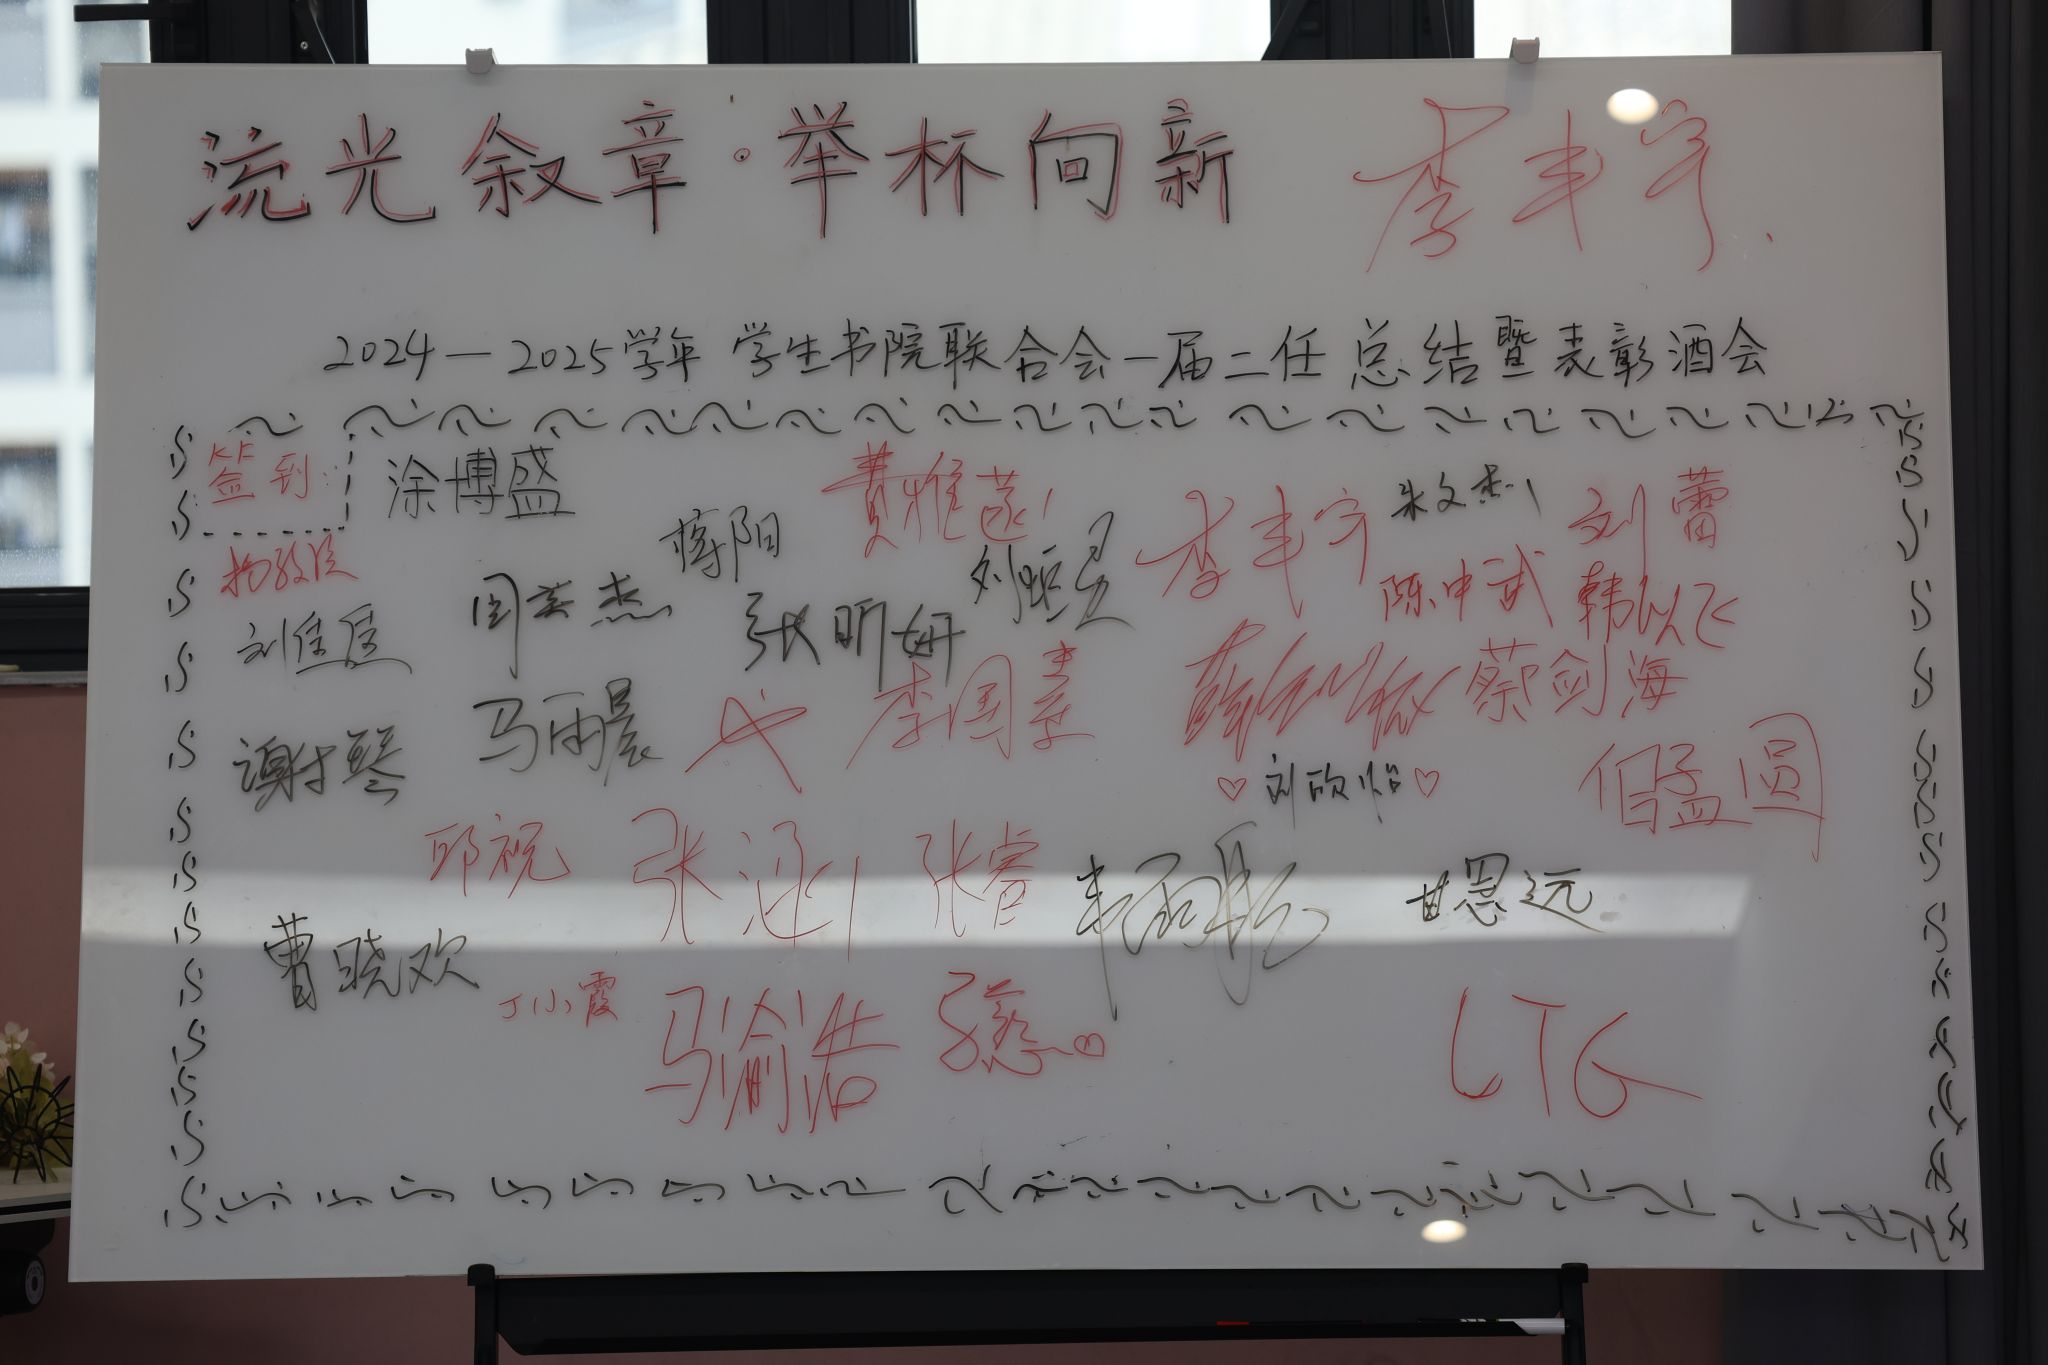 流光叙章·举杯向新
李丰宇
2024—2025学年 学生书院联合会一届二任总结暨表彰酒会
签到:
涂博盛
蒋阳
费雅
李丰宇
朱文杰
刘蕾
刘佳佳
周英杰
张昕妍
陈中武
韩以飞
谢琴
马雨晨
李国豪
蔡剑海
刘欣怡
佰孟圆
邱祝
张涵
张睿
甘恩远
曹晓欢
丁小霞
马渝浩
LTG